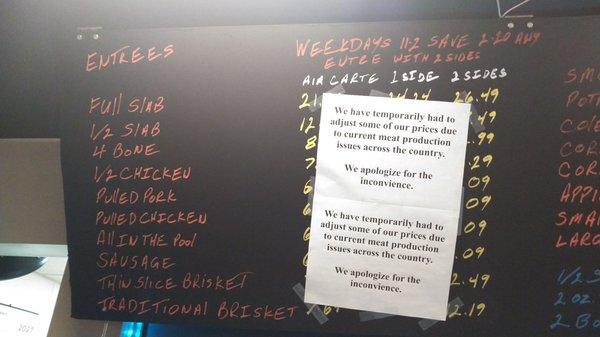 ENTREES
WEEKDAYS 11-2 SAVE 2.20 ANY
ENTRE WITH 2 SIDES
AIR CARTE 1 SIDE 2 SIDES
FULL SLAB 21. 24.24 26.49
1/2 SLAB 12 .49
4 BONE 8 .99
1/2 CHICKEN 7 .29
PULLED PORK 6 .09
PULLED CHICKEN 6 .09
All IN THE Pool 6 .09
SAUSAGE 6 .09
THIN SLICE BRISKET 2.49
TRADITIONAL BRISKET 2.19
We have temporarily had to
adjust some of our prices due
to current meat production
issues across the country.
We apologize for the
inconvience.
We have temporarily had to
adjust some of our prices due
to current meat production
issues across the country.
We apologize for the
inconvience.
SM
POT
COLE
COR
COR
APPL
SMA
LARG
1/2 S
2 OZ.
2 Bo
2021